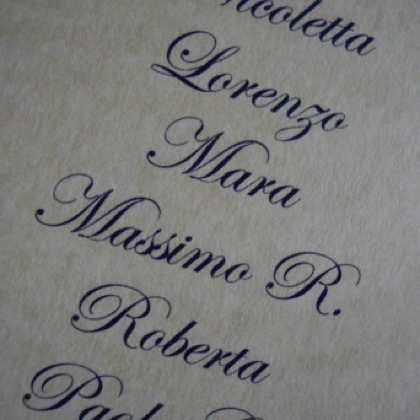 Nicoletta
Lorenzo
Mara
Massimo R.
Roberta